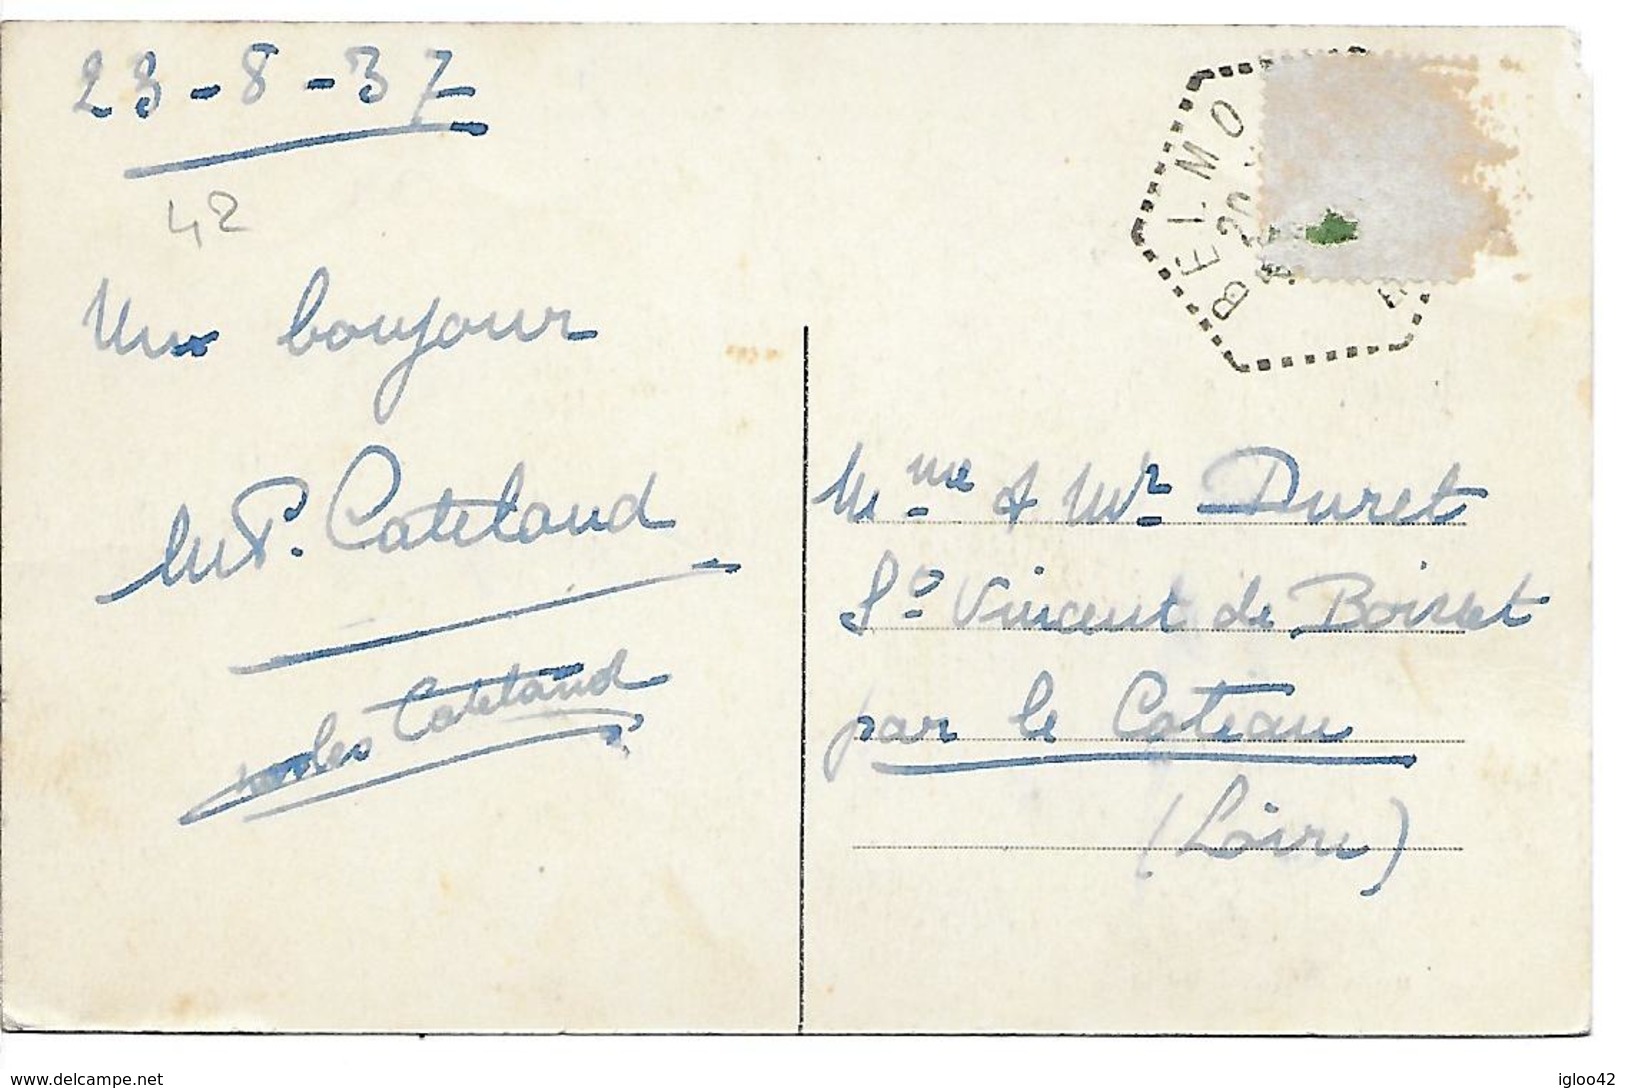 23-8-37
42
Un bonjour
M P. Cateland
les Cateland
BELMO
20
Mme & Mr Duret
St Vincent de Boisset
par le Coteau
(Loire)
www.delcampe.net
igloo42